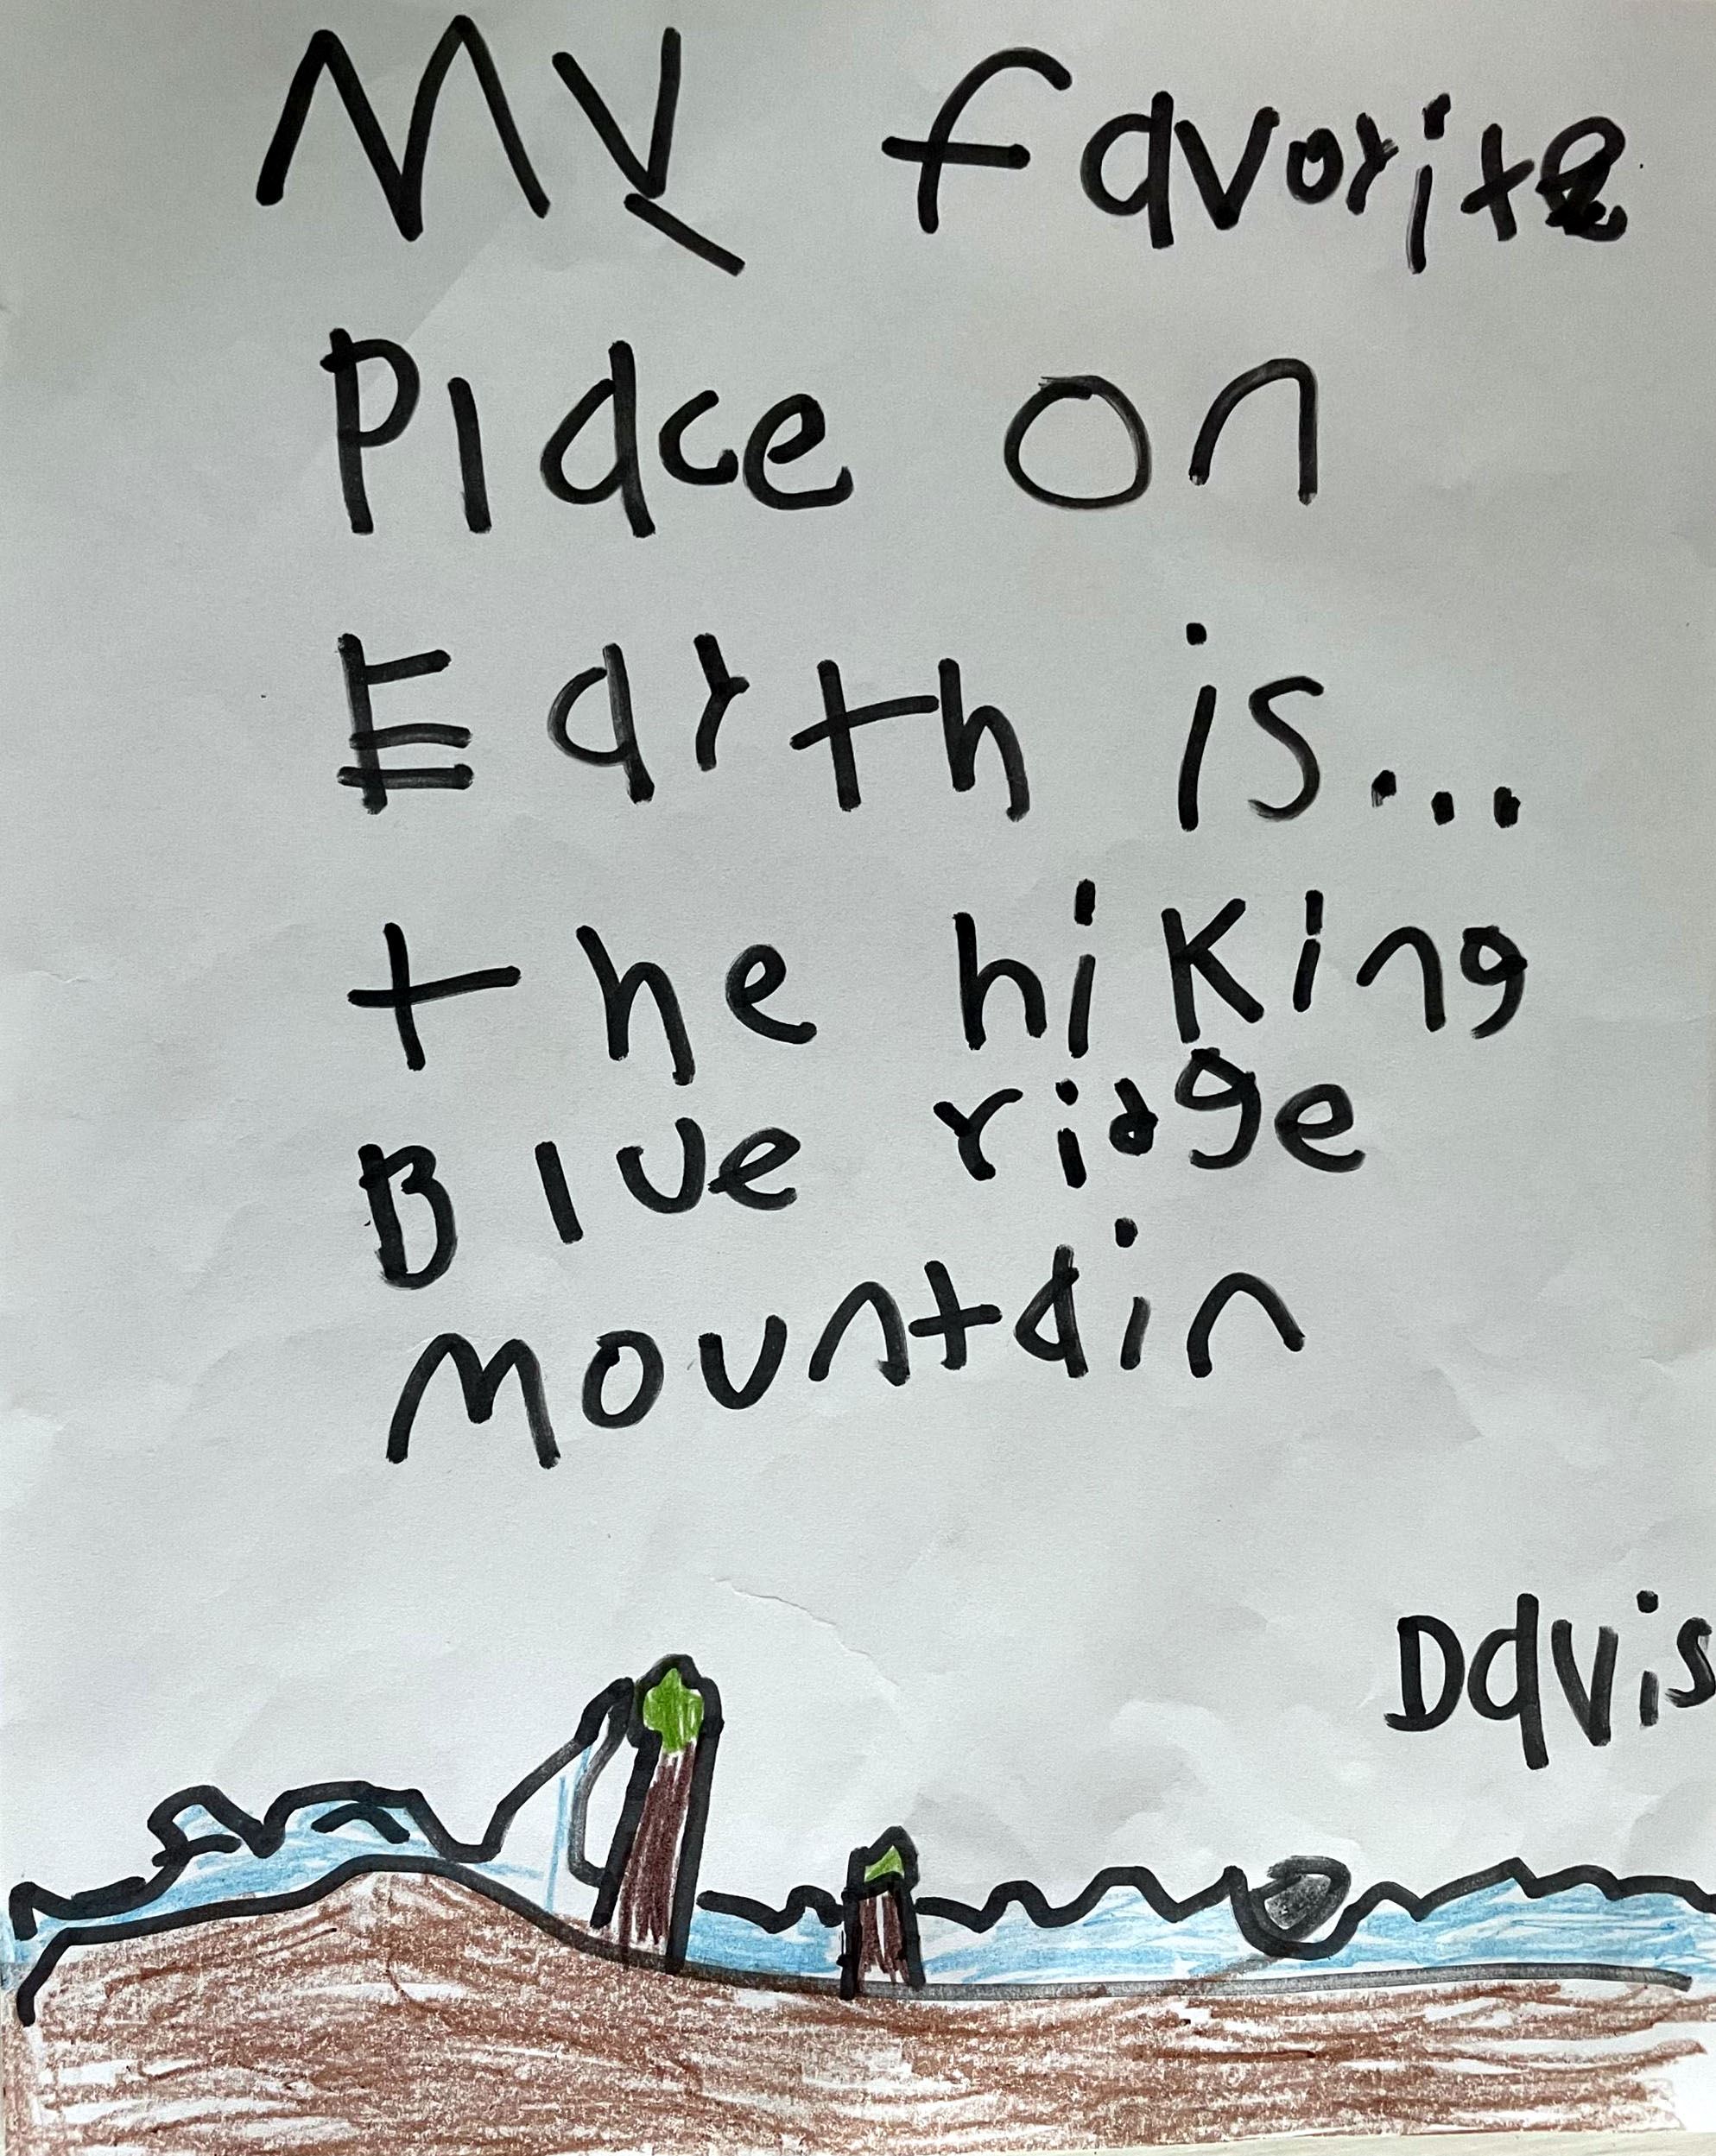 My favorite
Place on
Earth is...
the hiking
Blue ridge
mountain
Davis